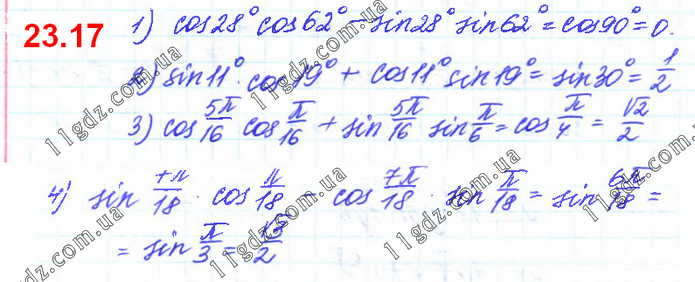 23.17 1) cos28° cos62° − sin28° sin62° = cos90° = 0.
2) sin11° · cos19° + cos11° sin19° = sin30° = 1/2
3) cos 5π/16 cos π/16 + sin 5π/16 sin π/6 = cos π/4 = √2/2
4) sin 7π/18 · cos π/18 − cos 7π/18 · sin π/18 = sin 6π/18 =
= sin π/3 = √3/2
11gdz.com.ua
11gdz.com.ua
11gdz.com.ua
11gdz.com.ua